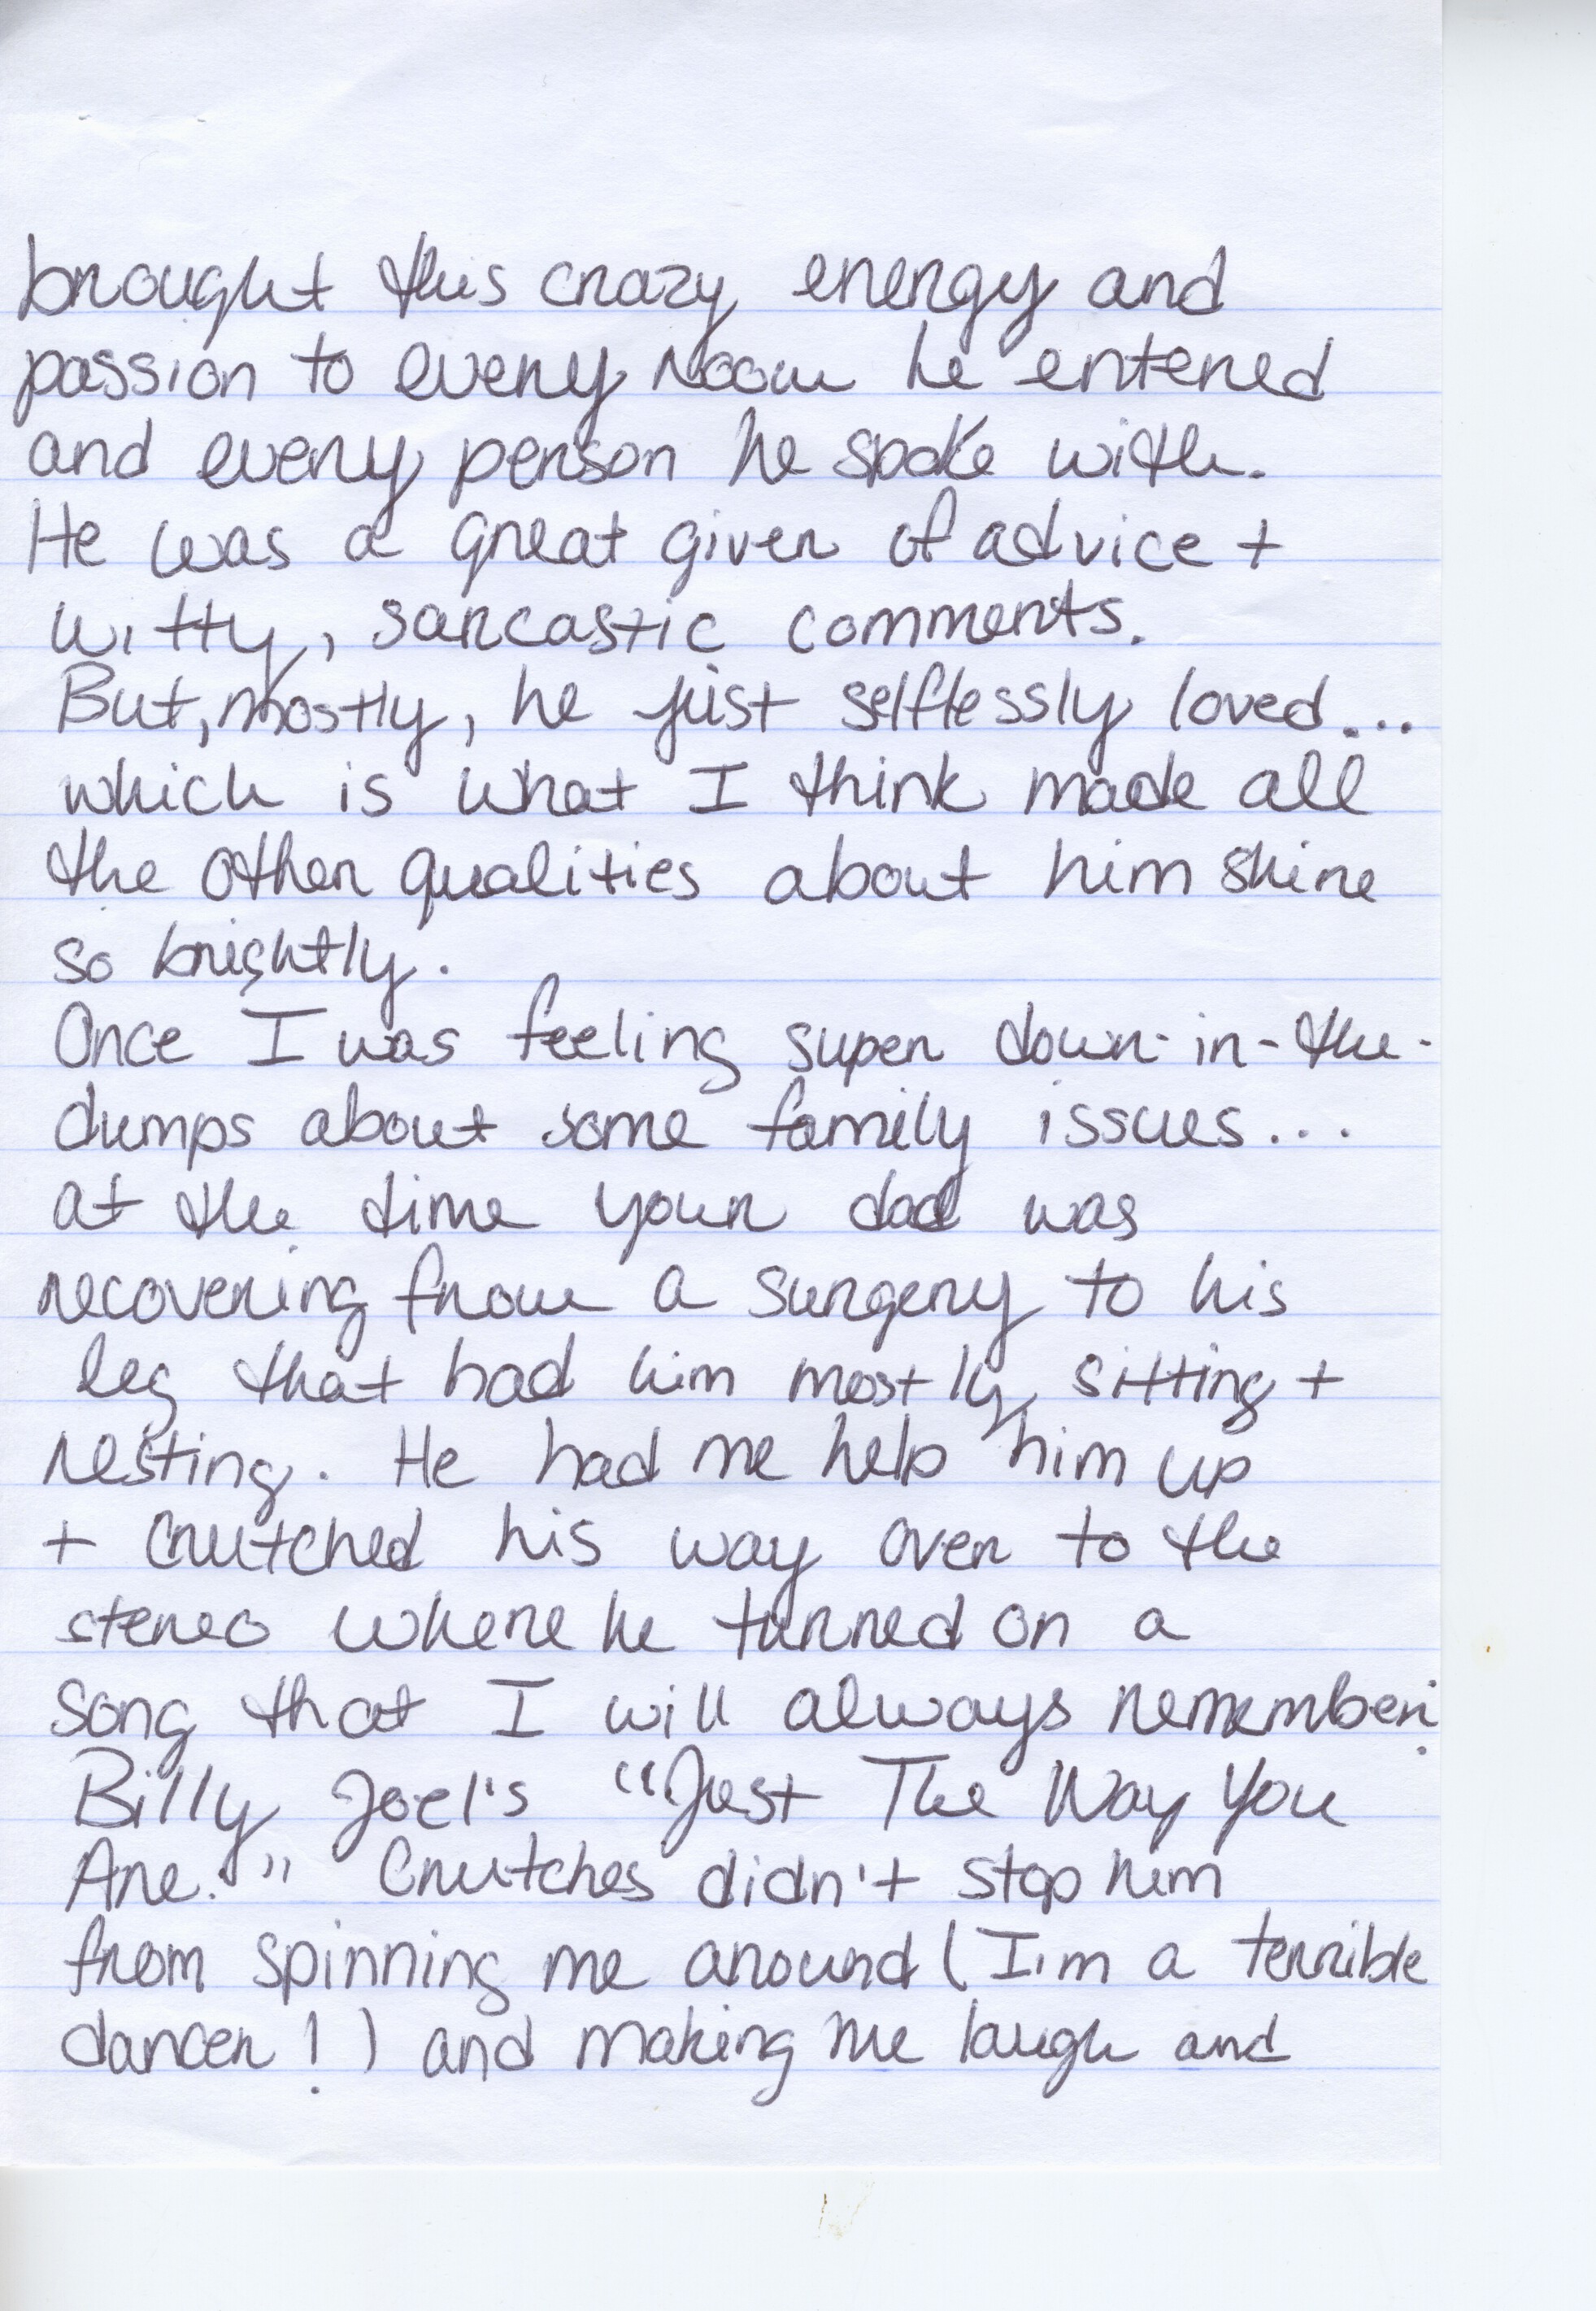 brought this crazy energy and
passion to every room he entered
and every person he spoke with.
He was a great giver of advice +
witty, sarcastic comments.
But, mostly, he just selflessly loved...
which is what I think made all
the other qualities about him shine
so brightly.
Once I was feeling super down-in-the-
dumps about some family issues...
at the time your dad was
recovering from a surgery to his
leg that had him mostly sitting +
resting. He had me help him up
+ crutched his way over to the
stereo where he turned on a
song that I will always remember:
Billy Joel's "Just The Way You
Are." Crutches didn't stop him
from spinning me around (I'm a terrible
dancer!) and making me laugh and